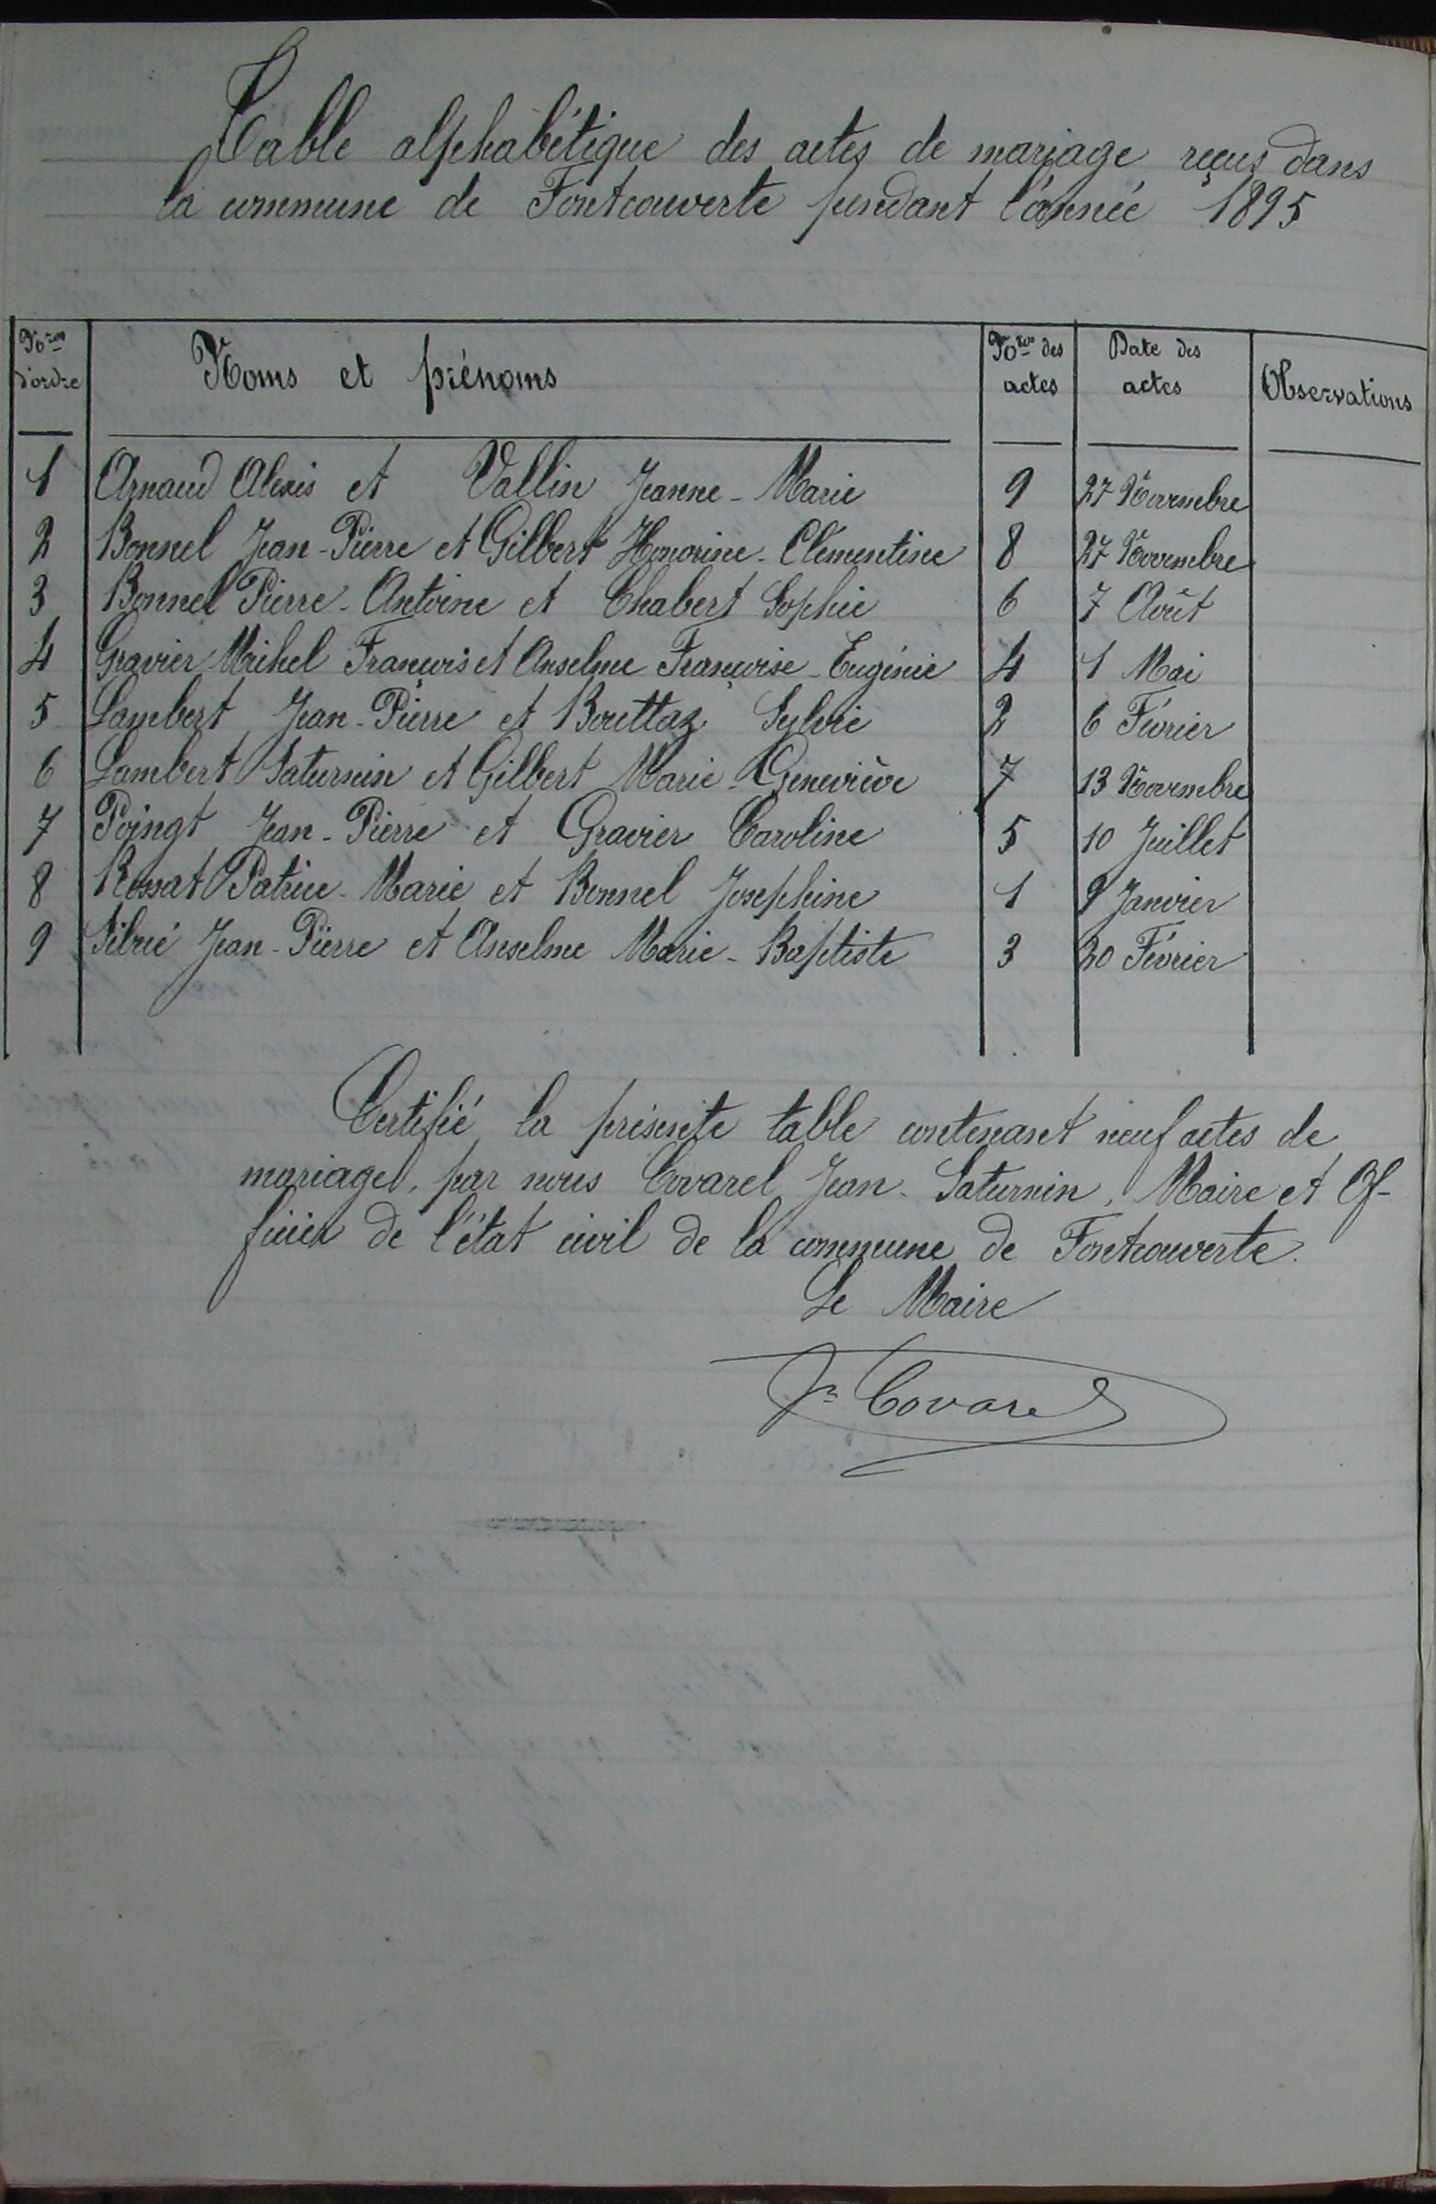 Table alphabétique des actes de mariage reçus dans
la commune de Fontcouverte pendant l'année 1895
Nos d'ordre Noms et prénoms Nros des actes Date des actes Observations
1 Arnaud Alexis et Vallin Jeanne-Marie 9 27 Novembre
2 Bonnel Jean-Pierre et Gilbert Honorine-Clémentine 8 27 Novembre
3 Bonnel Pierre-Antoine et Chabert Sophie 6 7 Août
4 Gravier Michel François et Anselme Françoise-Eugénie 4 1 Mai
5 Lambert Jean-Pierre et Bouttaz Sylvie 2 6 Février
6 Lambert Saturnin et Gilbert Marie-Geneviève 7 13 Novembre
7 Poingt Jean-Pierre et Gravier Caroline 5 10 Juillet
8 Rossat Patrice-Marie et Bonnel Josephine 1 9 Janvier
9 Sibué Jean-Pierre et Anselme Marie-Baptiste 3 20 Février
Certifié la présente table contenant neuf actes de
mariage, par nous Covarel Jean-Saturnin, Maire et Of-
ficier de l'état civil de la commune de Fontcouverte.
Le Maire
Jn Covarel